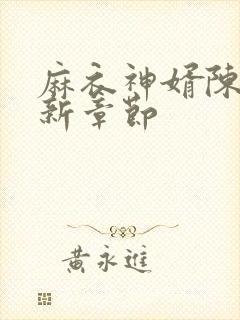 麻衣神婿陈
新章節
黄永進